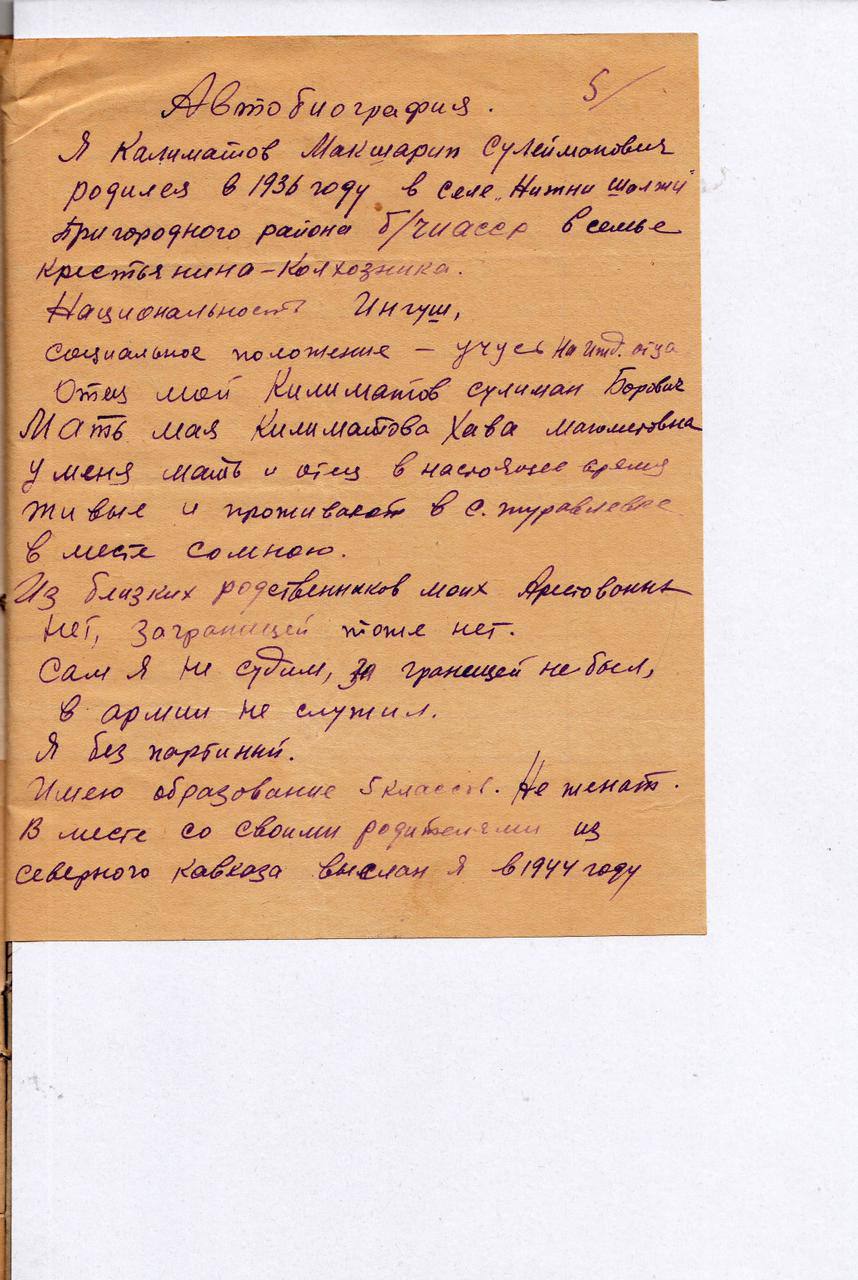 5/
Автобиография.
Я Калиматов Макшарип Сулейманович
родился в 1936 году в селе „Нижни Шолжи"
Пригородного района б/ЧИАССР в семье
крестьянина-колхозника.
Национальность Ингуш,
социальное положение – учусь на ижд. отца
Отец мой Килиматов Сулиман Борович
Мать мая Килиматова Хава Магометовна
У меня мать и отец в настоящее время
живые и проживают в с. Журавлевке
в месте сомною.
Из близких родственников моих Арестованых
нет, заграницей тоже нет.
Сам я не судим, за границей не был,
в армии не служил.
Я без партиный.
Имею образование 5 классов. Не женат.
В месте со своими родителями из
северного кавказа выслан я в 1944 году